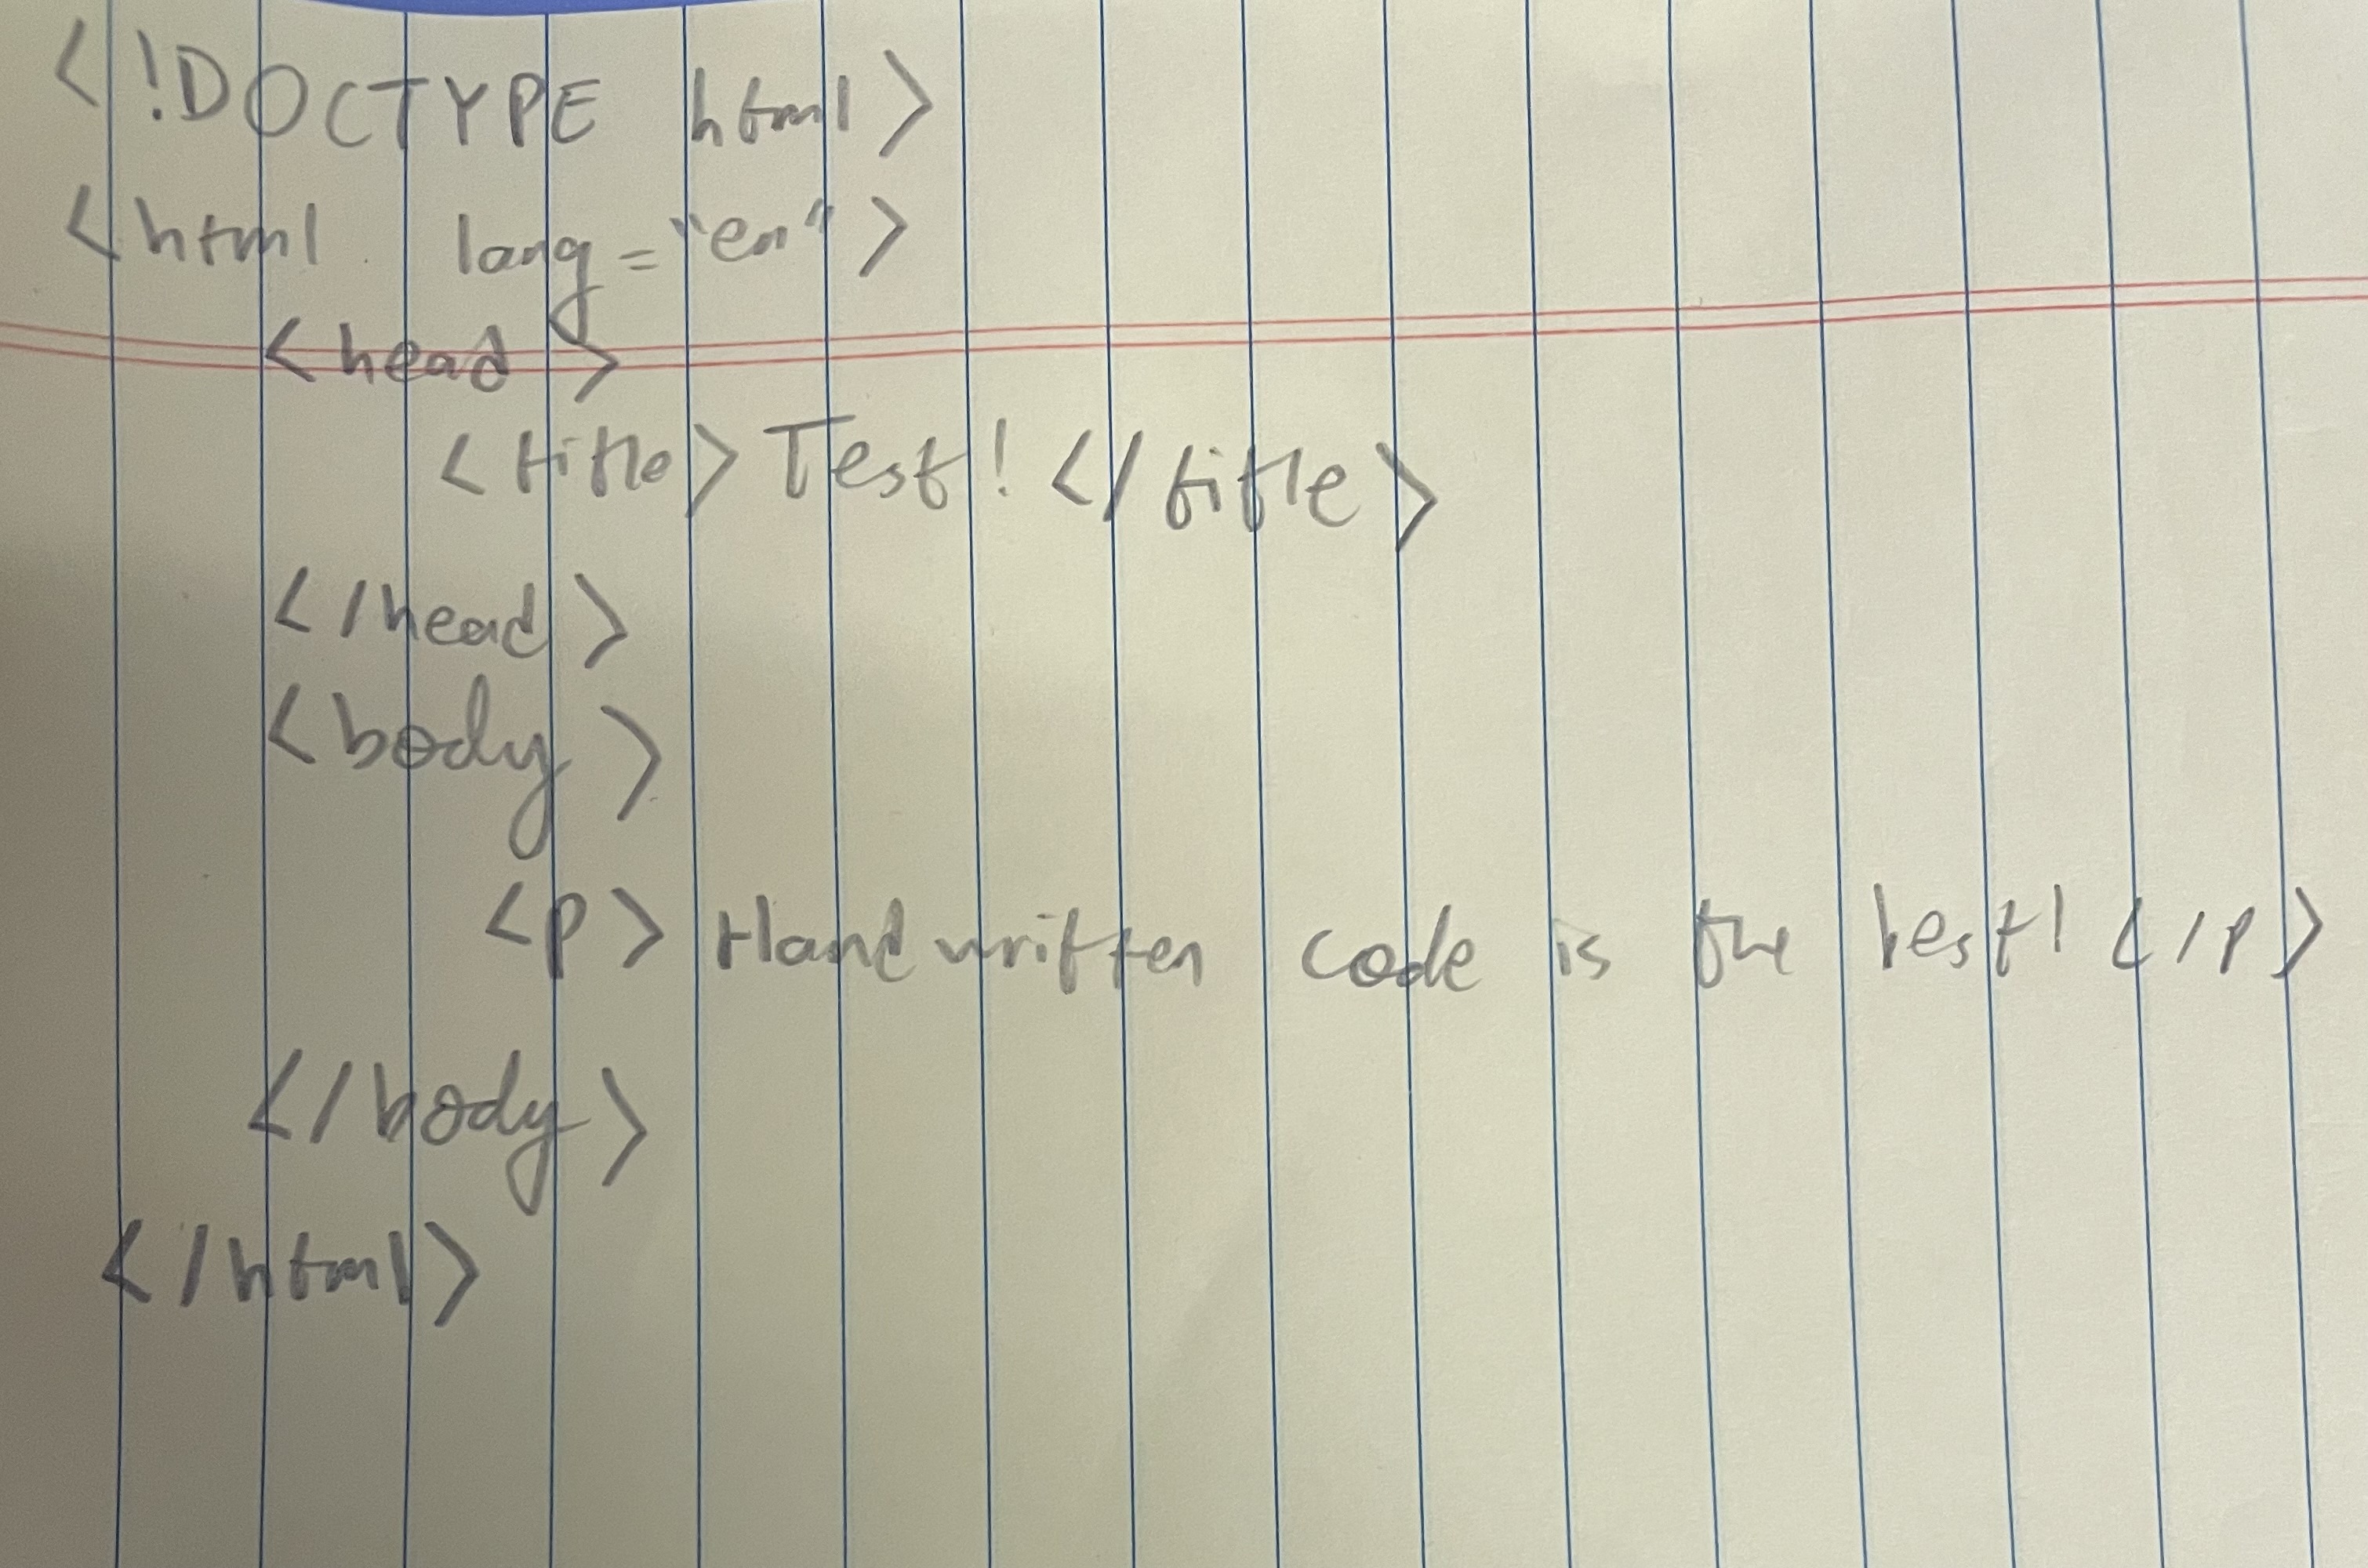 <!DOCTYPE html>
<html lang="en">
<head>
<title>Test!</title>
</head>
<body>
<p>Handwritten code is the best!</p>
</body>
</html>